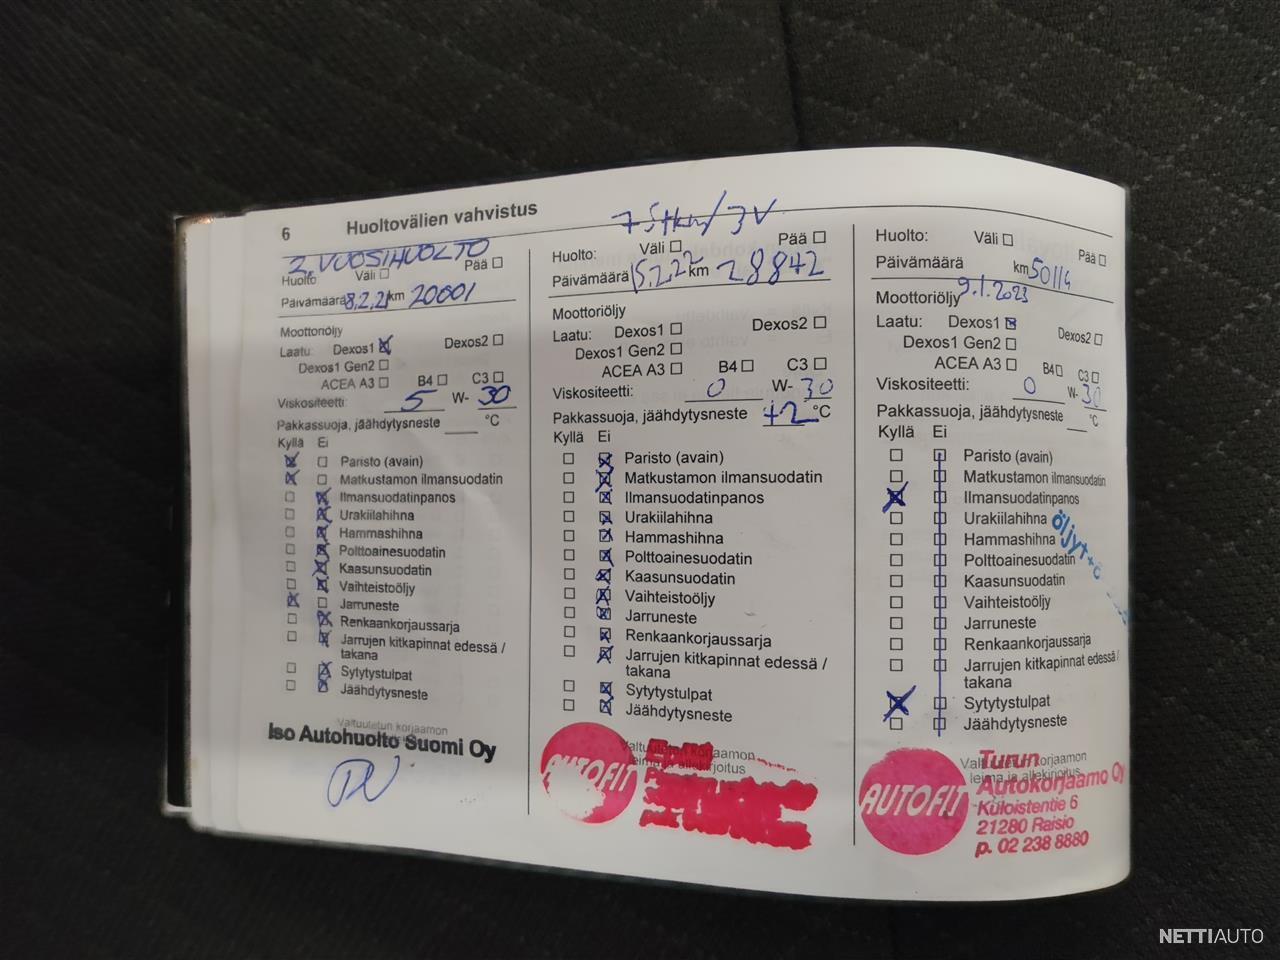 6 Huoltovälien vahvistus
2. VUOSIHUOLTO
Huolto Väli Pää
Päivämäärä 8.2.21 km 20001
Moottoriöljy
Laatu: Dexos1 Dexos2
Dexos1 Gen2
ACEA A3 B4 C3
Viskositeetti: 5 W- 30
Pakkassuoja, jäähdytysneste °C
Kyllä Ei
Paristo (avain)
Matkustamon ilmansuodatin
Ilmansuodatinpanos
Urakiilahihna
Hammashihna
Polttoainesuodatin
Kaasunsuodatin
Vaihteistoöljy
Jarruneste
Renkaankorjaussarja
Jarrujen kitkapinnat edessä /
takana
Sytytystulpat
Jäähdytysneste
Valtuutetun korjaamon
Iso Autohuolto Suomi Oy
75tkm/3V
Huolto: Väli Pää
Päivämäärä 15.2.22 km 28842
Moottoriöljy
Laatu: Dexos1 Dexos2
Dexos1 Gen2
ACEA A3 B4 C3
Viskositeetti: 0 W- 30
Pakkassuoja, jäähdytysneste +2 °C
Kyllä Ei
Paristo (avain)
Matkustamon ilmansuodatin
Ilmansuodatinpanos
Urakiilahihna
Hammashihna
Polttoainesuodatin
Kaasunsuodatin
Vaihteistoöljy
Jarruneste
Renkaankorjaussarja
Jarrujen kitkapinnat edessä /
takana
Sytytystulpat
Jäähdytysneste
Valtuutetun korjaamon
leima ja allekirjoitus
AUTOFIT
Huolto: Väli Pää
Päivämäärä km 50114
9.1.2023
Moottoriöljy
Laatu: Dexos1 Dexos2
Dexos1 Gen2
ACEA A3 B4 C3
Viskositeetti: 0 W- 30
Pakkassuoja, jäähdytysneste °C
Kyllä Ei
Paristo (avain)
Matkustamon ilmansuodatin
Ilmansuodatinpanos
Urakiilahihna
Hammashihna
Polttoainesuodatin
Kaasunsuodatin
Vaihteistoöljy
Jarruneste
Renkaankorjaussarja
Jarrujen kitkapinnat edessä /
takana
Sytytystulpat
Jäähdytysneste
Valtuutetun korjaamon
leima ja allekirjoitus
AUTOFIT
Turun
Autokorjaamo Oy
Kuloistentie 6
21280 Raisio
p. 02 238 8880
NETTIAUTO